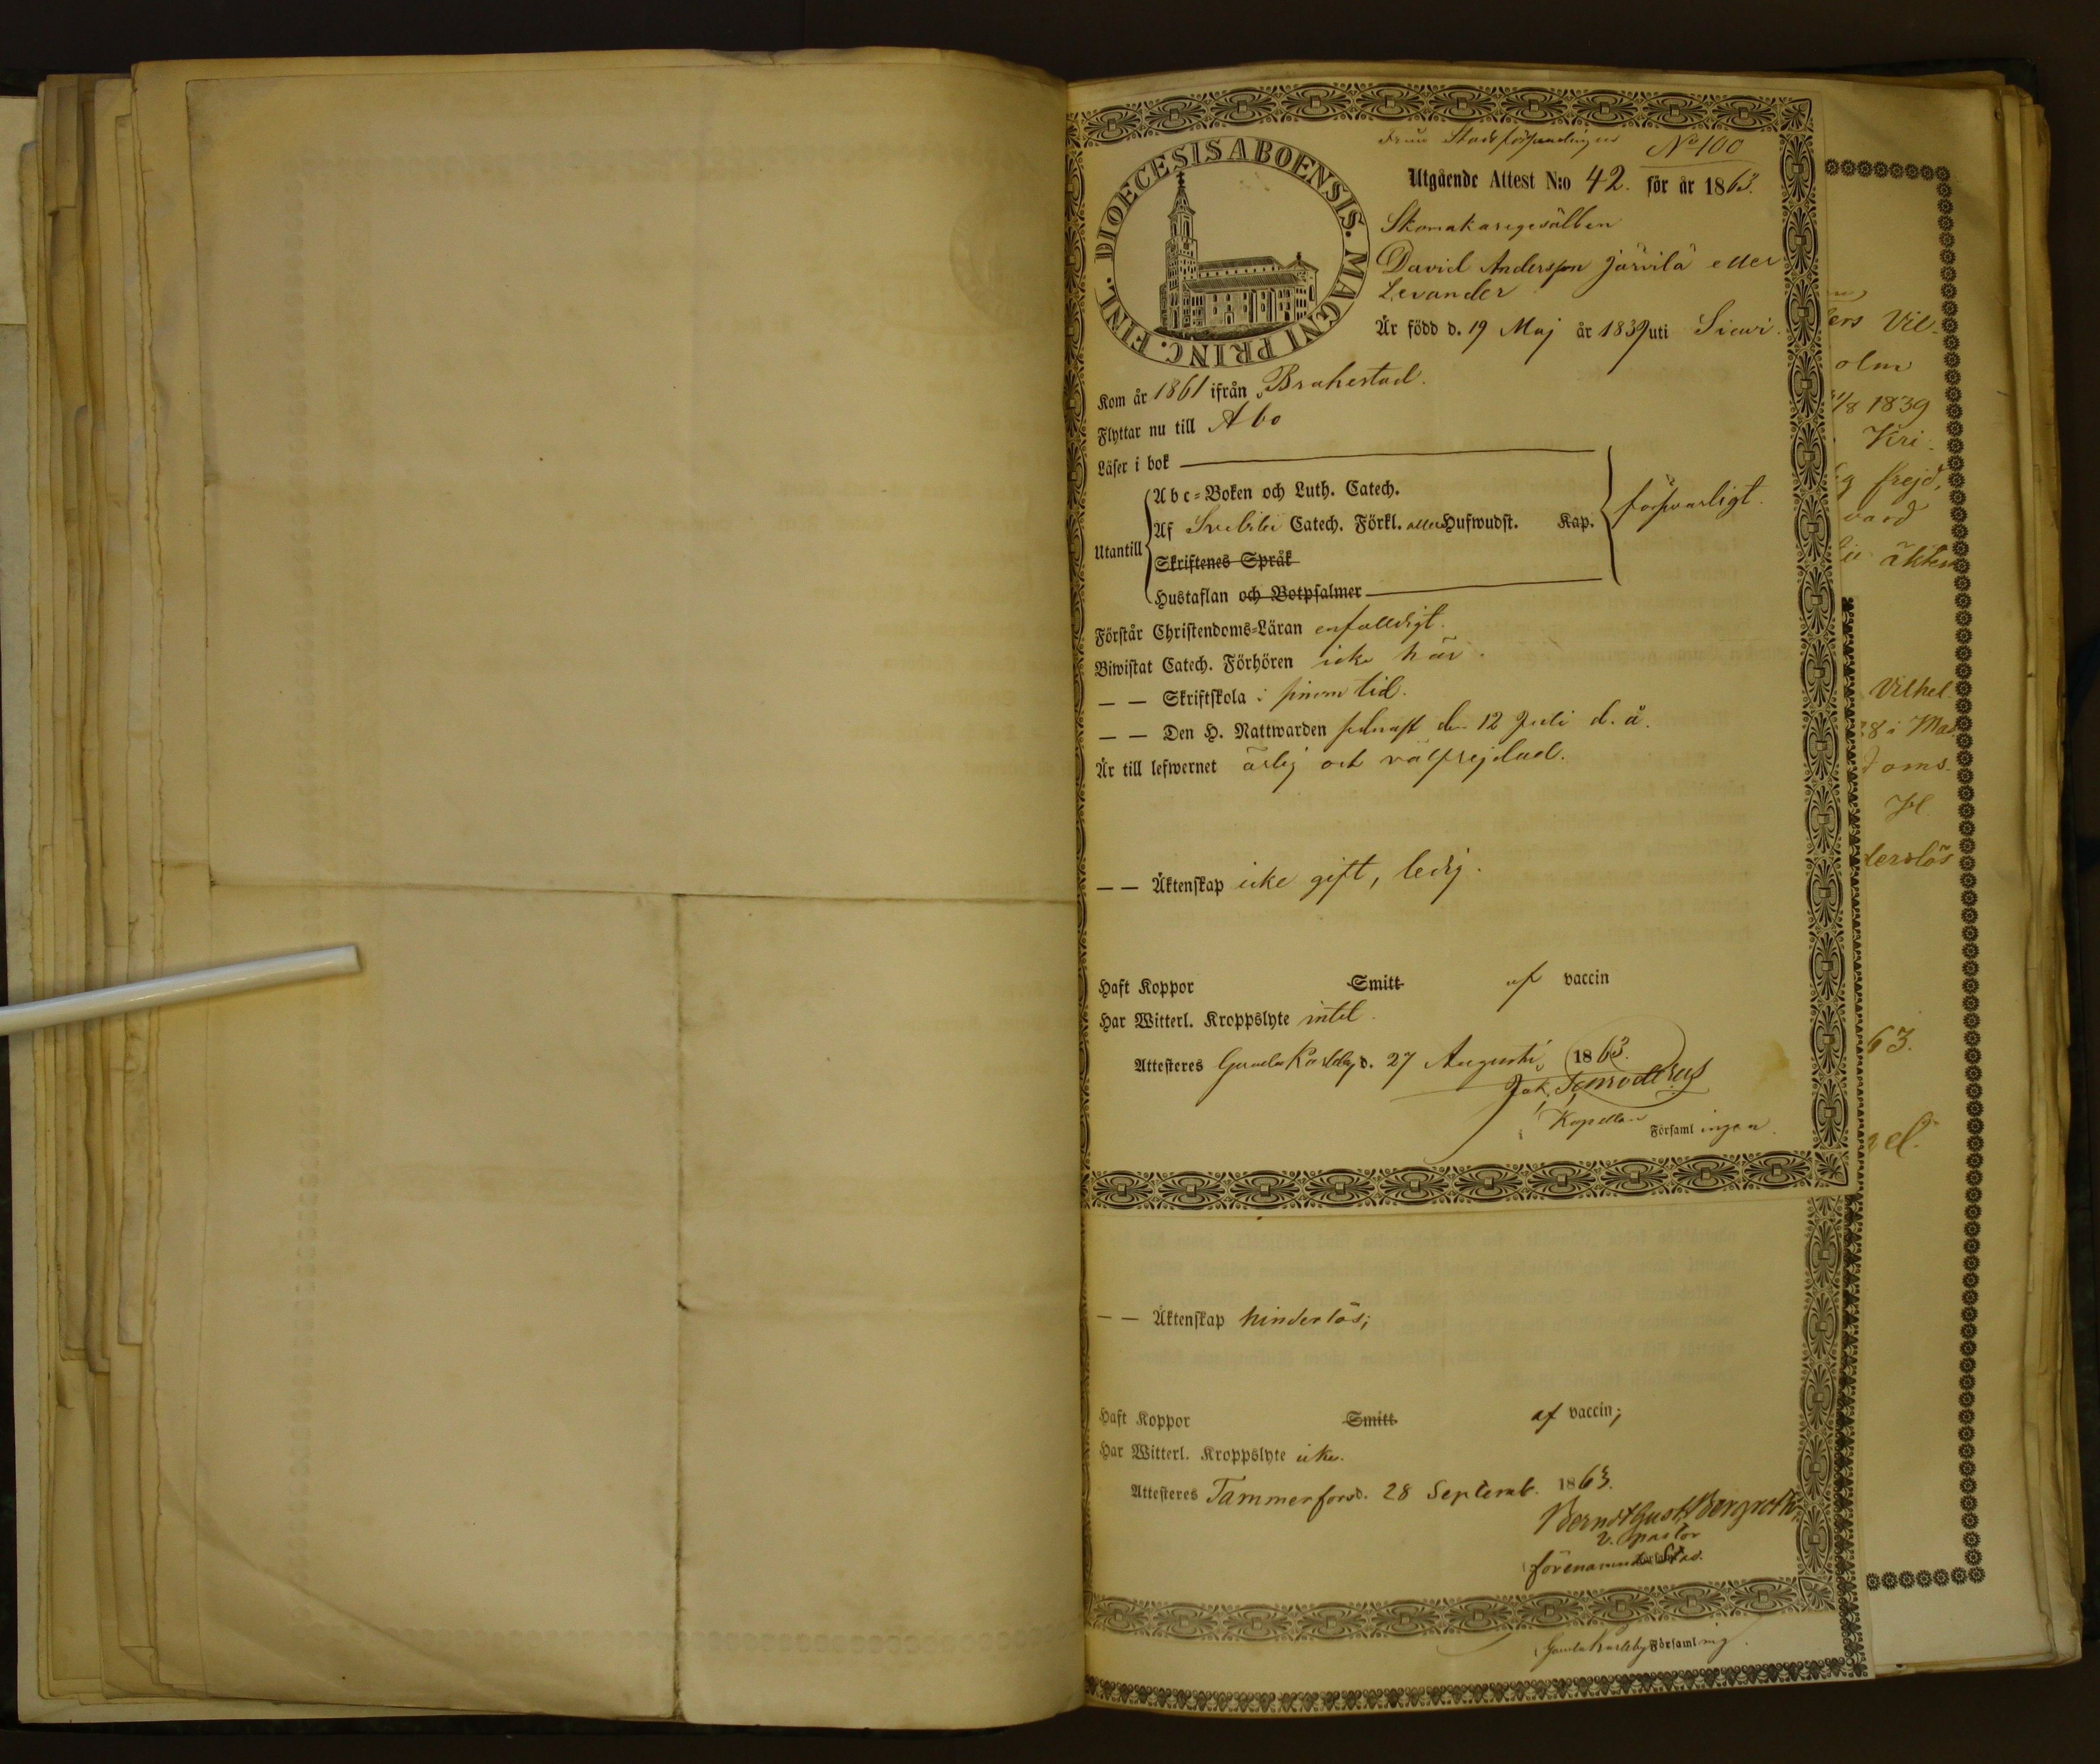 DIOECESIS ABOENSIS. MAGNI PRINC. FINL.
Från Stadsförsamlingen No 100
Utgående Attest N:o 42. för år 1863.
Skomakaregesällen
David Andersson Järvilä eller
Levander
Är född d. 19 Maj år 1839 uti Siewi.
Kom år 1861 ifrån Brahestad.
Flyttar nu till Åbo
Läser i bok
Abc-Boken och Luth. Catech.
Utantill Af Svebilii Catech. Förkl. eller Hufwudst. Kap. försvarligt.
Skriftenes Språk
Hustaflan och Botpsalmer
Förstår Christendoms-Läran enfalldigt.
Biwistat Catech. Förhören icke här.
— — Skriftskola i sinom tid.
— — Den H. Nattwarden sednast den 12 Juli d. å.
Är till lefwernet ärlig och välfrejdad.
— — Äktenskap icke gift, ledig.
Haft Koppor Smitt af vaccin
Har Witterl. Kroppslyte intet.
Attesteres Gamla Karleby d. 27 Augusti 1863.
Jak.
Kapellan
Församlingen.
— — Äktenskap hinderlös;
Haft Koppor Smitt af vaccin;
Har Witterl. Kroppslyte icke.
Attesteres Tammerfors d. 28 Septemb. 1863.
Berndt Gust. Bergroth,
v. pastor
förenämnda
Gamla Karleby Församling.
ers Vil-
olm
1/8 1839
Kri
g frejd,
vard
äkten
Vilhel
8 i Mas
doms.
derslös
63.
el.